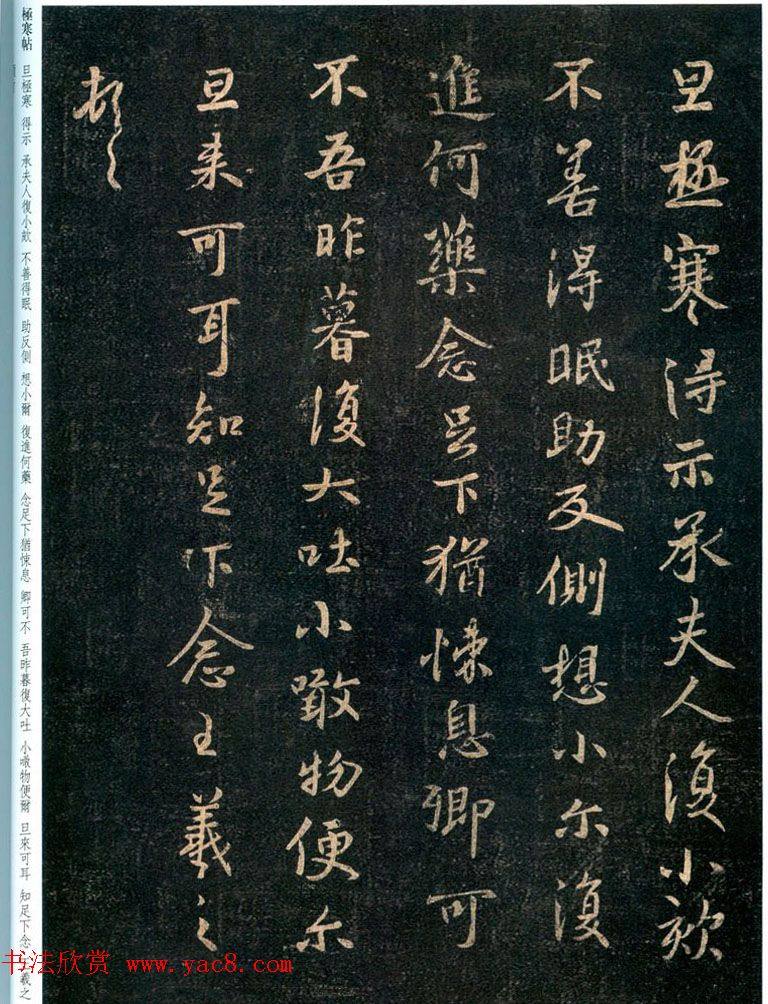 旦極寒得示承夫人復小欬
不善得眠助反側想小尔復
進何藥念足下猶悚息卿可
不吾昨暮復大吐小噉物便尔
旦来可耳知足下念王羲之
頓首
極寒帖 旦極寒 得示 承夫人復小欬 不善得眠 助反側 想小爾 復進何藥 念足下猶悚息 卿可不 吾昨暮復大吐 小噉物便爾 旦來可耳 知足下念 王羲之
书法欣赏 www.yac8.com